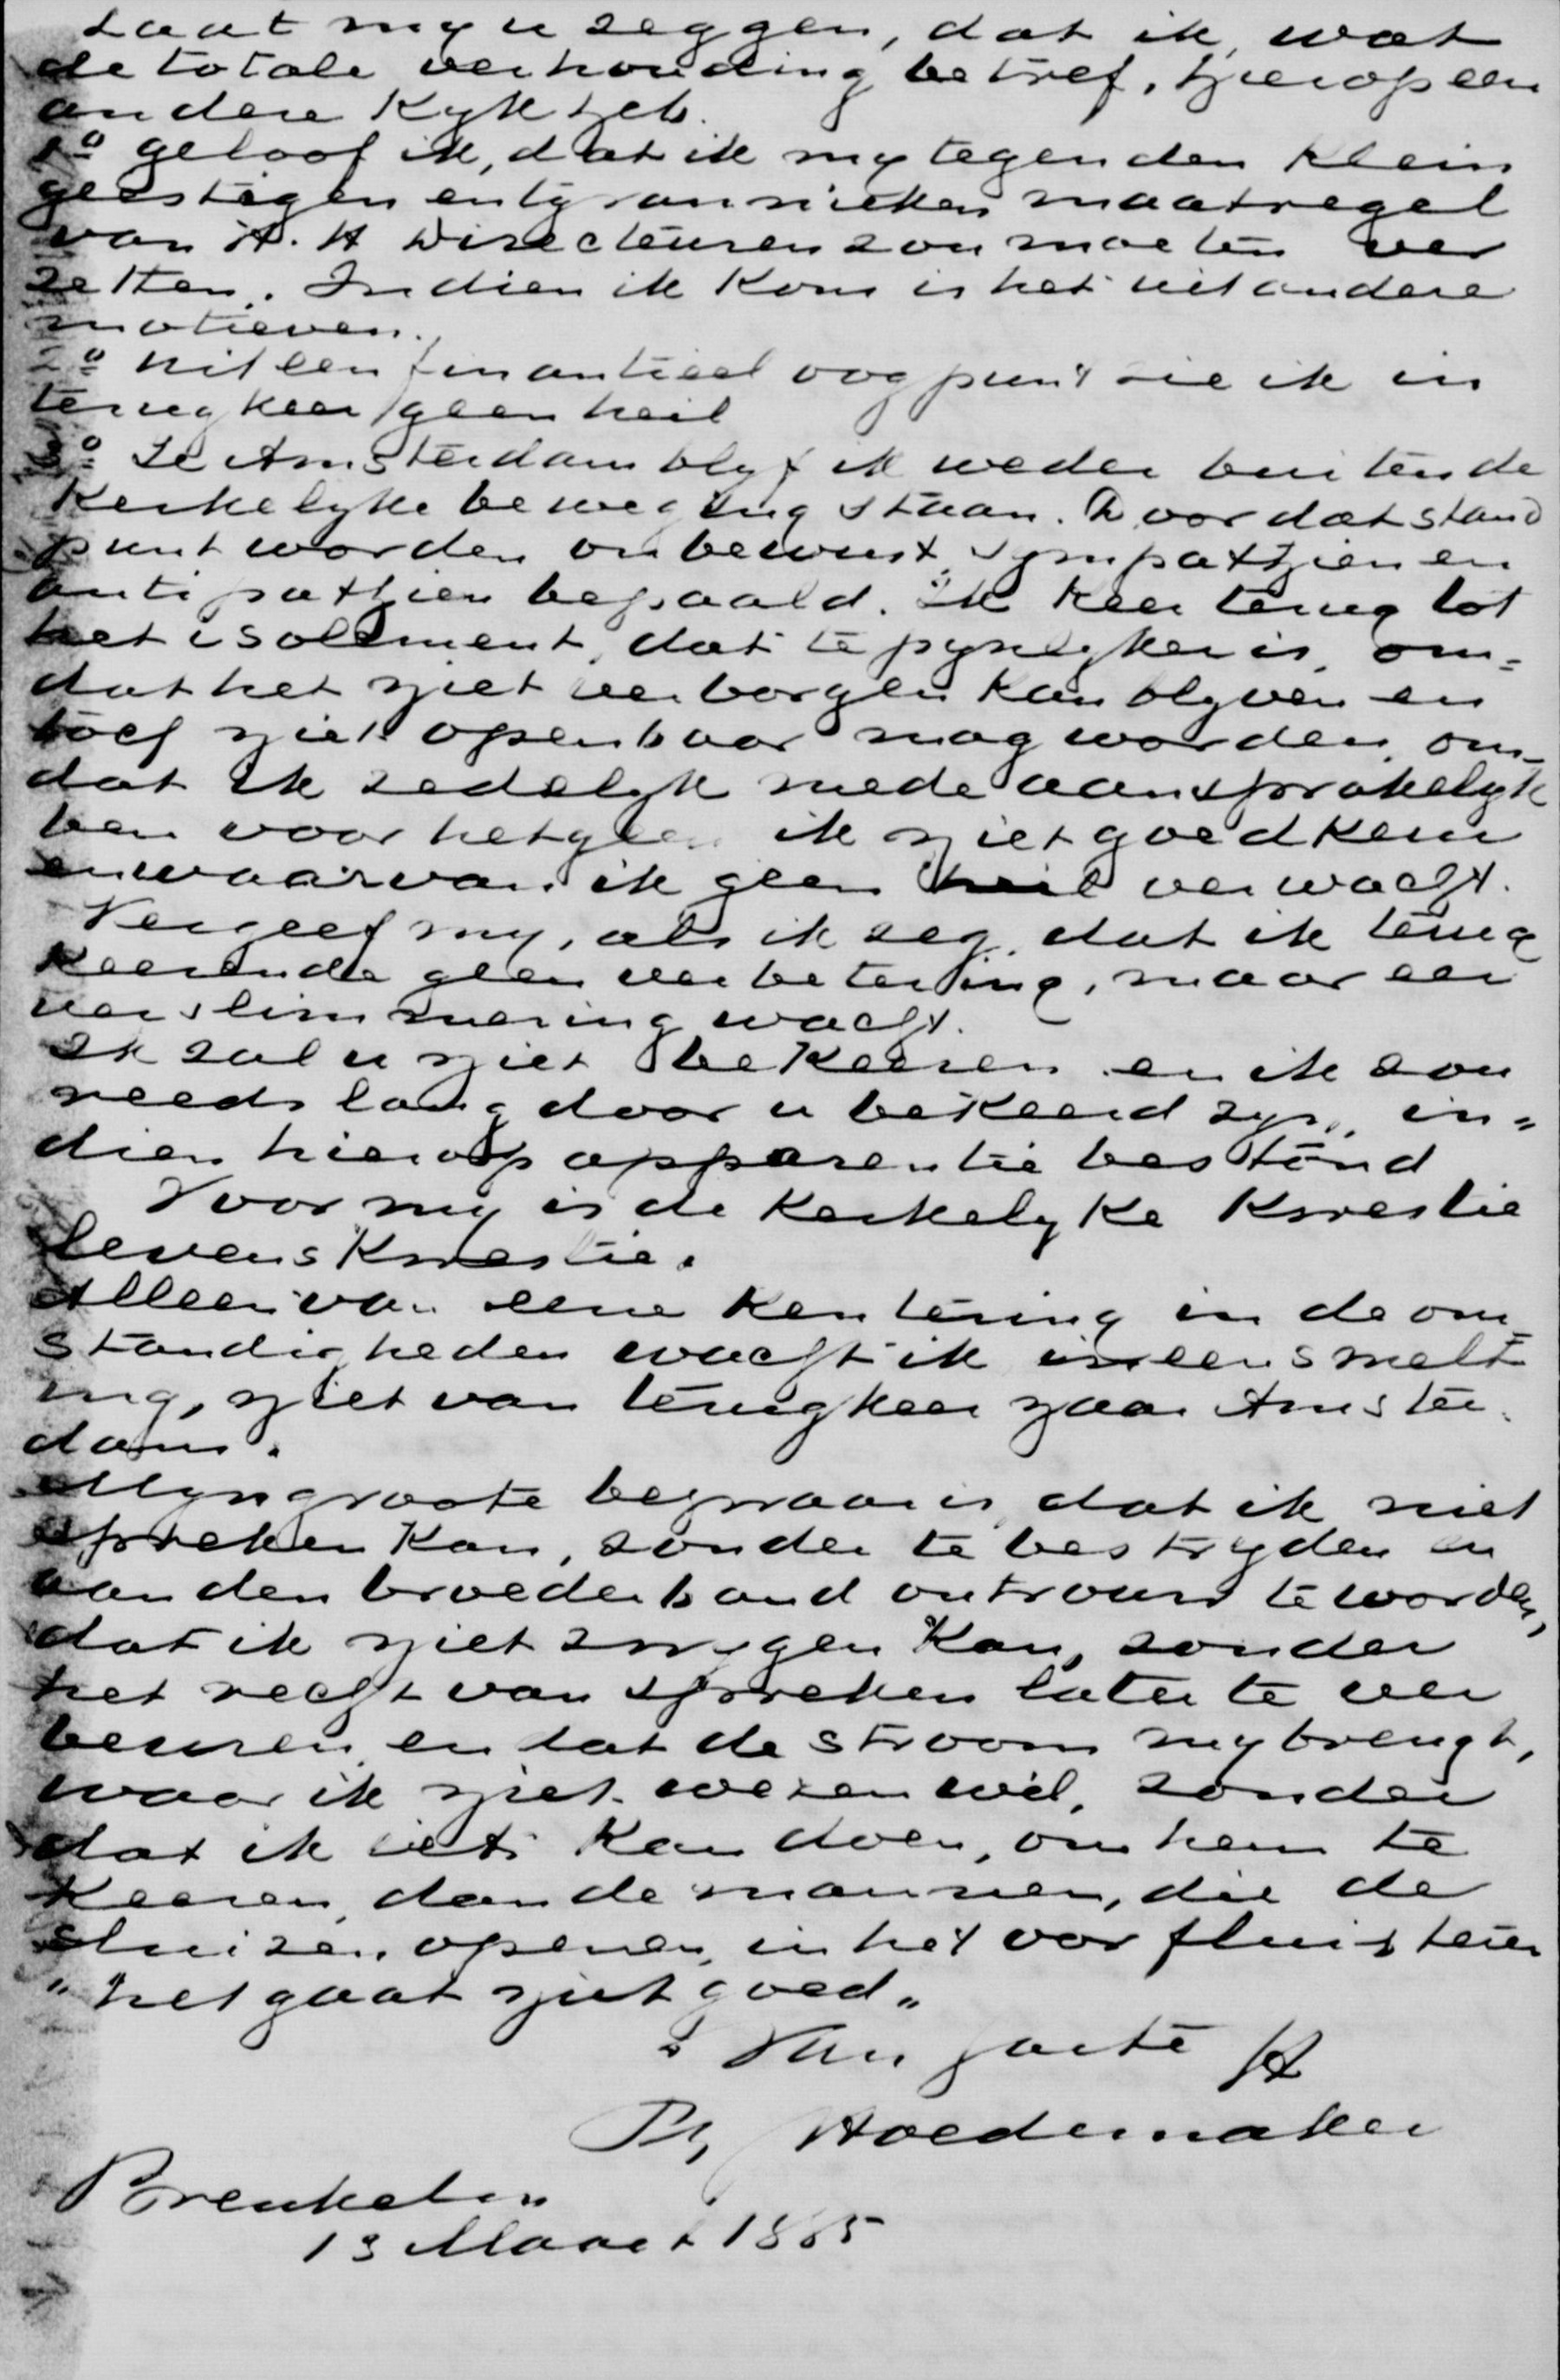 Laat my u zeggen, dat ik, wat
de totale verhouding betref, hierop een
andere kyk heb.
1º geloof ik, dat ik my tegen den klein
geestigen en tyrannieken maatregel
van H.H Directeuren zou moeten ver
zetten. Indien ik kom is het uit andere
motieven.
2º uit een finantieel oogpunt zie ik in
terugkeer geen heil
3º Te Amsterdam blyf ik weder buiten de
Kerkelyke beweging staan. Door dat stand
punt worden onbewust sympathien en
antipathien bepaald. Ik keer terug tot
het isolement, dat te pynlyker is, om=
dat het niet verborgen kan blyven en
toch niet openbaar mag worden, om-
dat ik zedelyk mede aansprakelyk
ben voor hetgeen ik niet goedkeur
en waarvan ik geen heil verwacht.
Vergeef my, als ik zeg, dat ik terug
keerende geen verbetering, maar een
verslimmering wacht.
Ik zal u niet bekeeren en ik zou
reeds lang door u bekeerd zyn, in=
dien hierop apparentie bestond
Voor my is de Kerkelyke Kwestie
levenskwestie.
Alleen van eene kentering in de om
standigheden wacht ik ineensmelt
ing, niet van terugkeer naar Amster
dam.
Myn groote bezwaar is dat ik niet
spreken kan, zonder te bestryden en
aan den broederband ontrouw te worden,
dat ik niet zwygen kan, zonder
het recht van spreken later te ver
beuren en dat de stroom my brengt,
waar ik niet wezen wil, zonder
dat ik iets kan doen, om hem te
keeren, dan de mannen, die de
sluizen openen, in het oor fluisteren
"het gaat niet goed"
Van harte
Ph Hoedemaker
Breukelen
13 Maart 1885